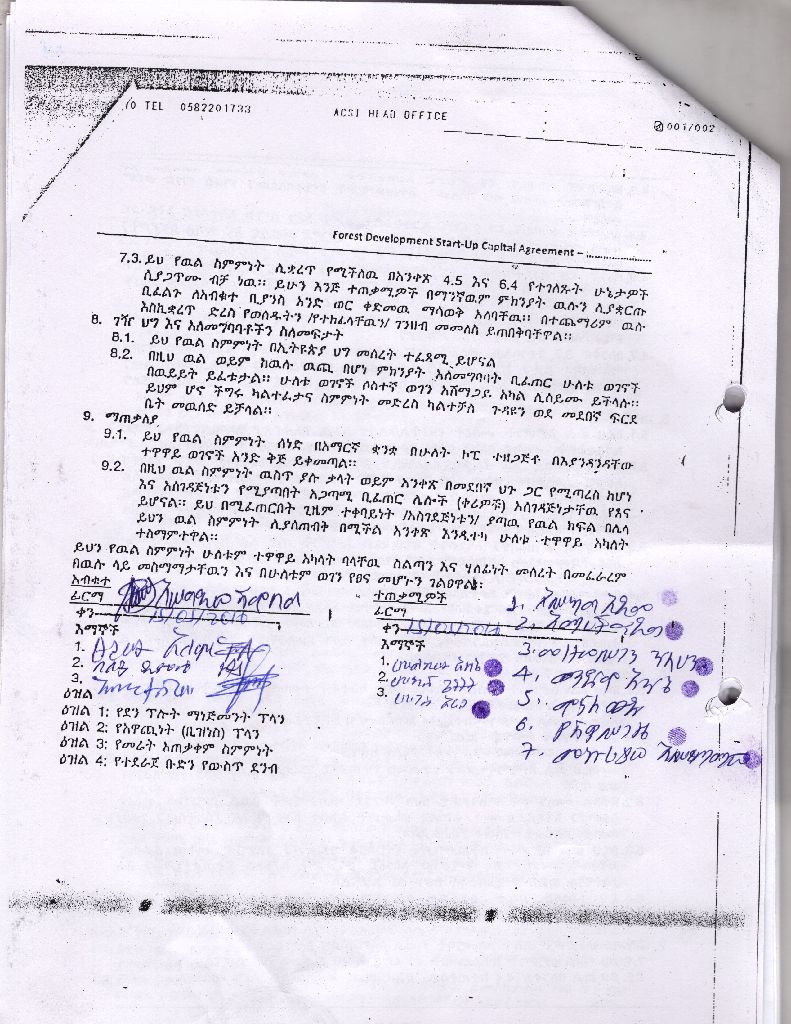 TEL 0582201733
ACSI HEAD OFFICE
001/002
Forest Development Start-Up Capital Agreement – ....................
7.3. ይህ የዉል ስምምነት ሊቋረጥ የሚችለዉ በአንቀጽ 4.5 እና 6.4 የተገለጹት ሁኔታዎች
ሲያጋጥሙ ብቻ ነዉ። ይሁን እንጅ ተጠቃሚዎች በማንኛዉም ምክንያት ዉሉን ሊያቋርጡ
ቢፈልጉ ለአብቁተ ቢያንስ አንድ ወር ቀድመዉ ማሳወቅ አለባቸዉ። በተጨማሪም ዉሉ
እስኪቋረጥ ድረስ የወሰዱትን /የተከፈላቸዉን/ ገንዘብ መመለስ ይጠበቅባቸዋል።
8. ገዥ ህግ እና አለመግባባቶችን ስለመፍታት
8.1. ይህ የዉል ስምምነት በኢትዮጵያ ህግ መሰረት ተፈጻሚ ይሆናል
8.2. በዚህ ዉል ወይም ከዉሉ ዉጪ በሆነ ምክንያት አለመግባባት ቢፈጠር ሁለቱ ወገኖች
በዉይይት ይፈቱታል። ሁለቱ ወገኖች ሶስተኛ ወገን አሸማጋይ አካል ሊሰይሙ ይችላሉ።
ይህም ሆኖ ችግሩ ካልተፈታና ስምምነት መድረስ ካልተቻለ ጉዳዩን ወደ መደበኛ ፍርድ
ቤት መዉሰድ ይቻላል።
9. ማጠቃለያ
9.1. ይህ የዉል ስምምነት ሰነድ በአማርኛ ቋንቋ በሁለት ኮፒ ተዘጋጅቶ በእያንዳንዳቸው
ተዋዋይ ወገኖች አንድ ቅጅ ይቀመጣል።
9.2. በዚህ ዉል ስምምነት ዉስጥ ያሉ ቃላት ወይም አንቀጽ በመደበኛ ህጉ ጋር የሚጣረስ ከሆነ
እና አስገዳጅነቱን የሚያጣበት አጋጣሚ ቢፈጠር ሌሎች (ቀሪዎች) አስገዳጅነታቸዉ የፀና
ይሆናል። ይህ በሚፈጠርበት ጊዜም ተቀባይነት /አስገደጅነቱን/ ያጣዉ የዉል ክፍል በሌላ
ይህን ዉል ስምምነት ሊያስጠብቅ በሚችል አንቀጽ እንዲተካ ሁለቱ ተዋዋይ አካላት
ተስማምተዋል።
ይህን የዉል ስምምነት ሁለቱም ተዋዋይ አካላት ባላቸዉ ስልጣን እና ሃላፊነት መሰረት በመፈራረም
በዉሉ ላይ መስማማታቸዉን እና በሁለቱም ወገን የፀና መሆኑን ገልፀዋል፡
አብቁተ
ፊርማ
ቀን
እማኞች
1.
2.
3.
ተጠቃሚዎች
ፊርማ
ቀን
እማኞች
1.
2.
3.
1.
2.
3.
4.
5.
6.
7.
ዕዝል
ዕዝል 1: የደን ፕሎት ማነጅመንት ፕላን
ዕዝል 2: የአዋጪነት (ቢዝነስ) ፕላን
ዕዝል 3: የመሬት አጠቃቀም ስምምነት
ዕዝል 4: የተደራጀ ቡድን የውስጥ ደንብ